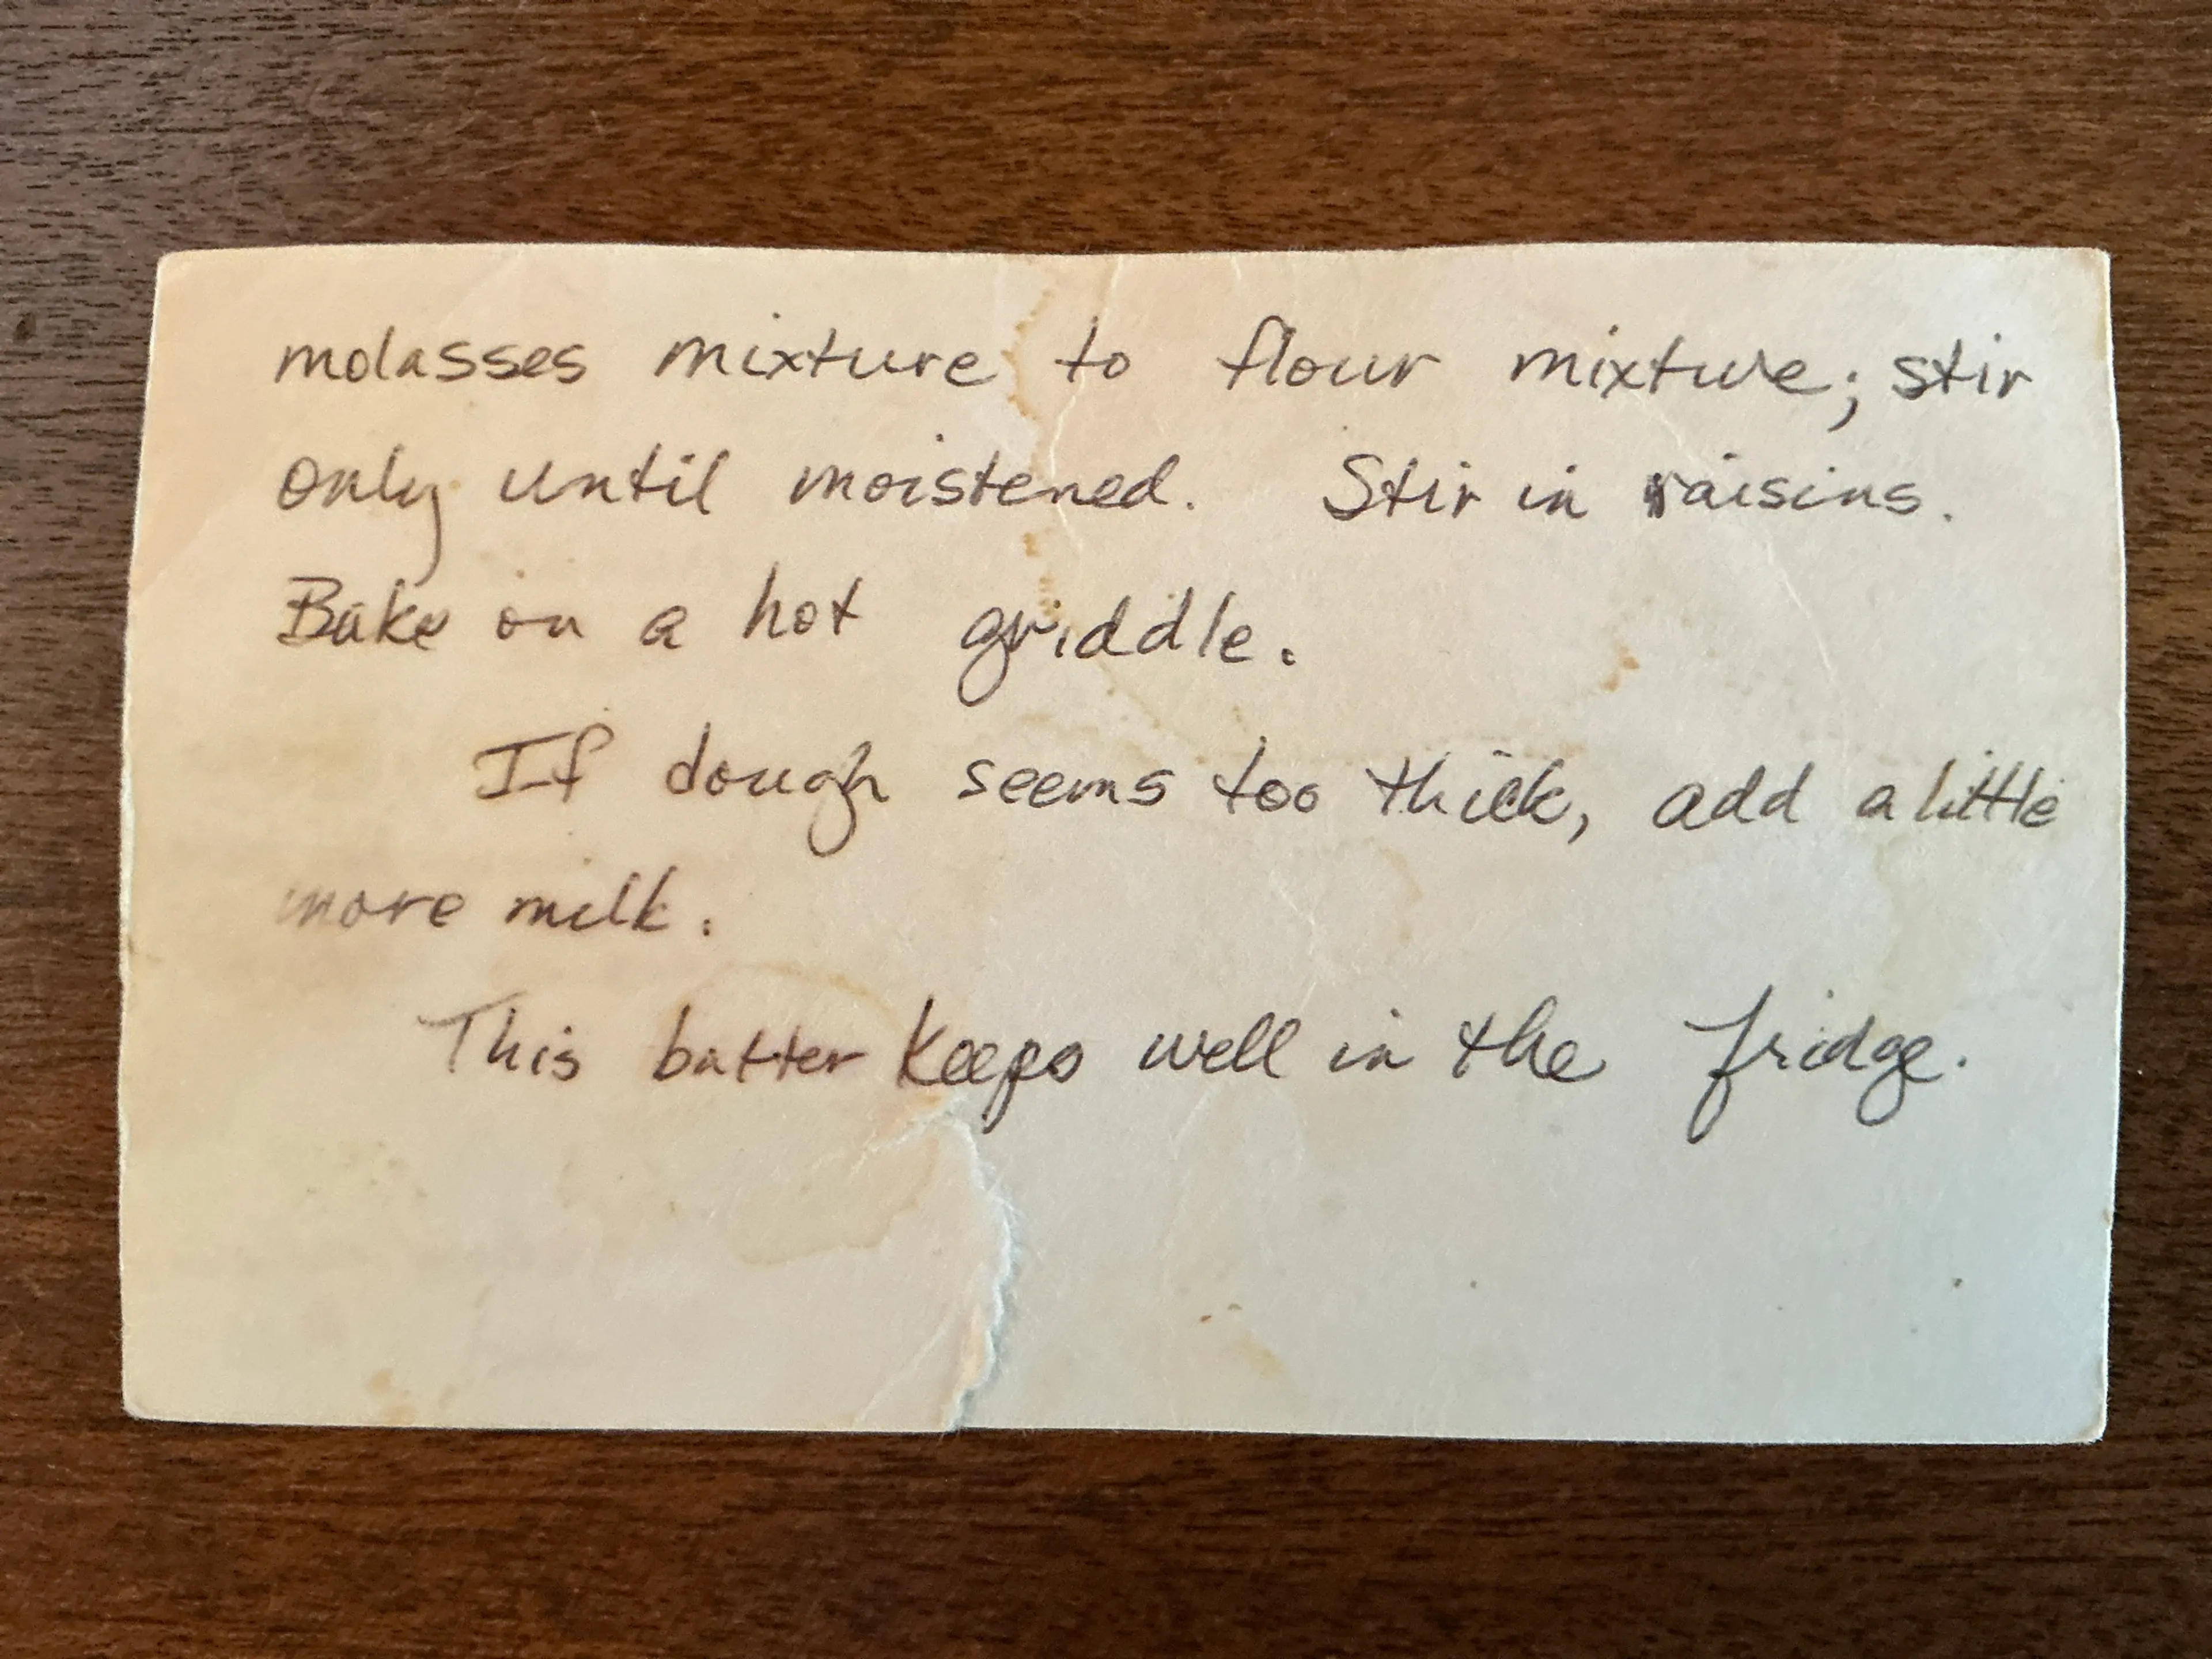 molasses mixture to flour mixture; stir
only until moistened. Stir in raisins.
Bake on a hot griddle.
If dough seems too thick, add a little
more milk.
This batter keeps well in the fridge.